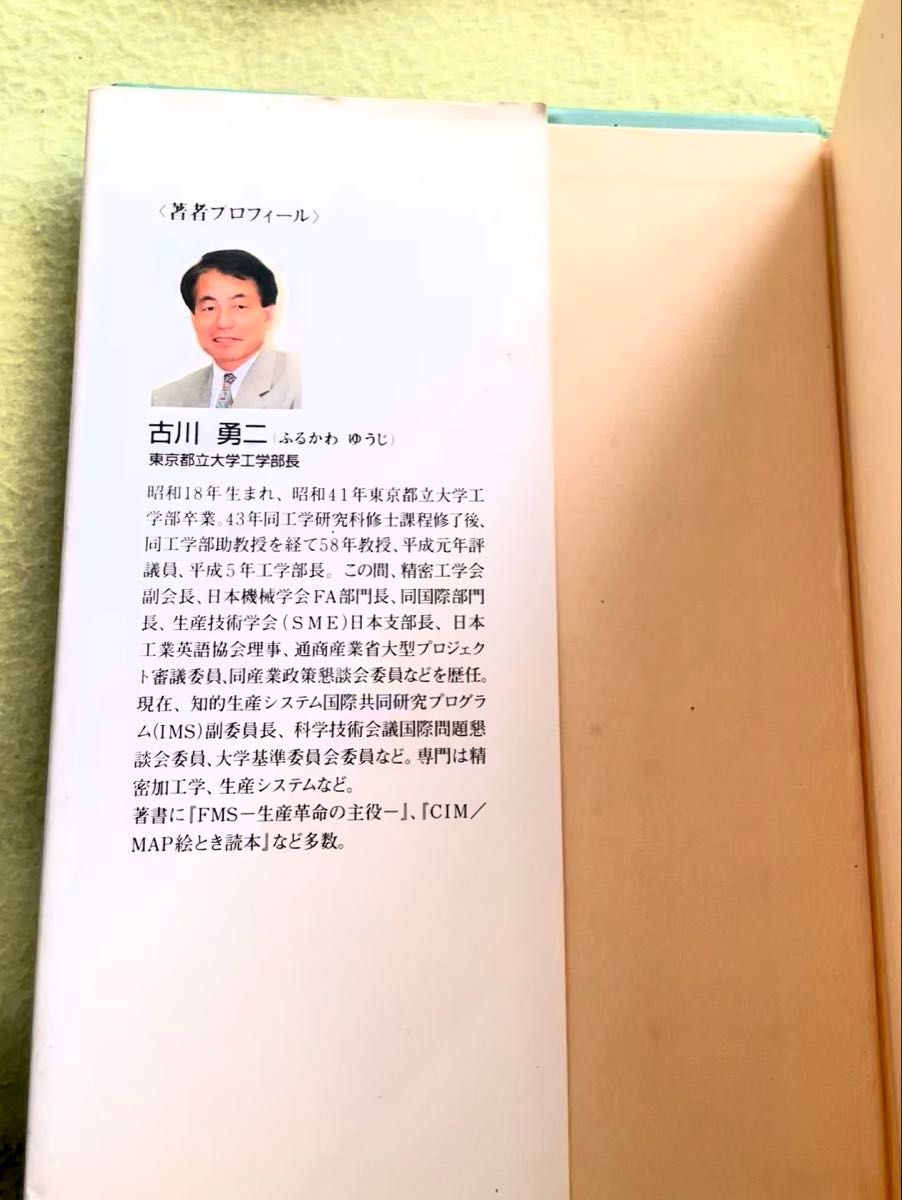 〈著者プロフィール〉
古川 勇二(ふるかわ ゆうじ)
東京都立大学工学部長
昭和18年生まれ、昭和41年東京都立大学工
学部卒業。43年同工学研究科修士課程修了後、
同工学部助教授を経て58年教授、平成元年評
議員、平成5年工学部長。この間、精密工学会
副会長、日本機械学会FA部門長、同国際部門
長、生産技術学会(SME)日本支部長、日本
工業英語協会理事、通商産業省大型プロジェク
ト審議委員、同産業政策懇談会委員などを歴任。
現在、知的生産システム国際共同研究プログラ
ム(IMS)副委員長、科学技術会議国際問題懇
談会委員、大学基準委員会委員など。専門は精
密加工学、生産システムなど。
著書に『FMS－生産革命の主役－』、『CIM／
MAP絵とき読本』など多数。